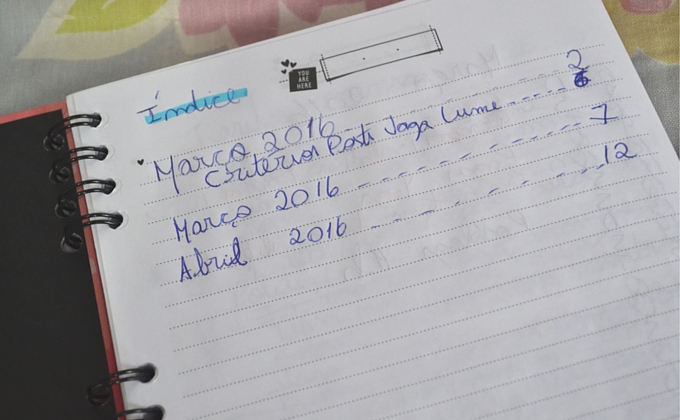 Índice
YOU
ARE
HERE
Março 2016 2
Critérios Posts Joga Lume ----- 6
Março 2016 - - - - - - - - - 7
Abril 2016 - - - - - - - 12